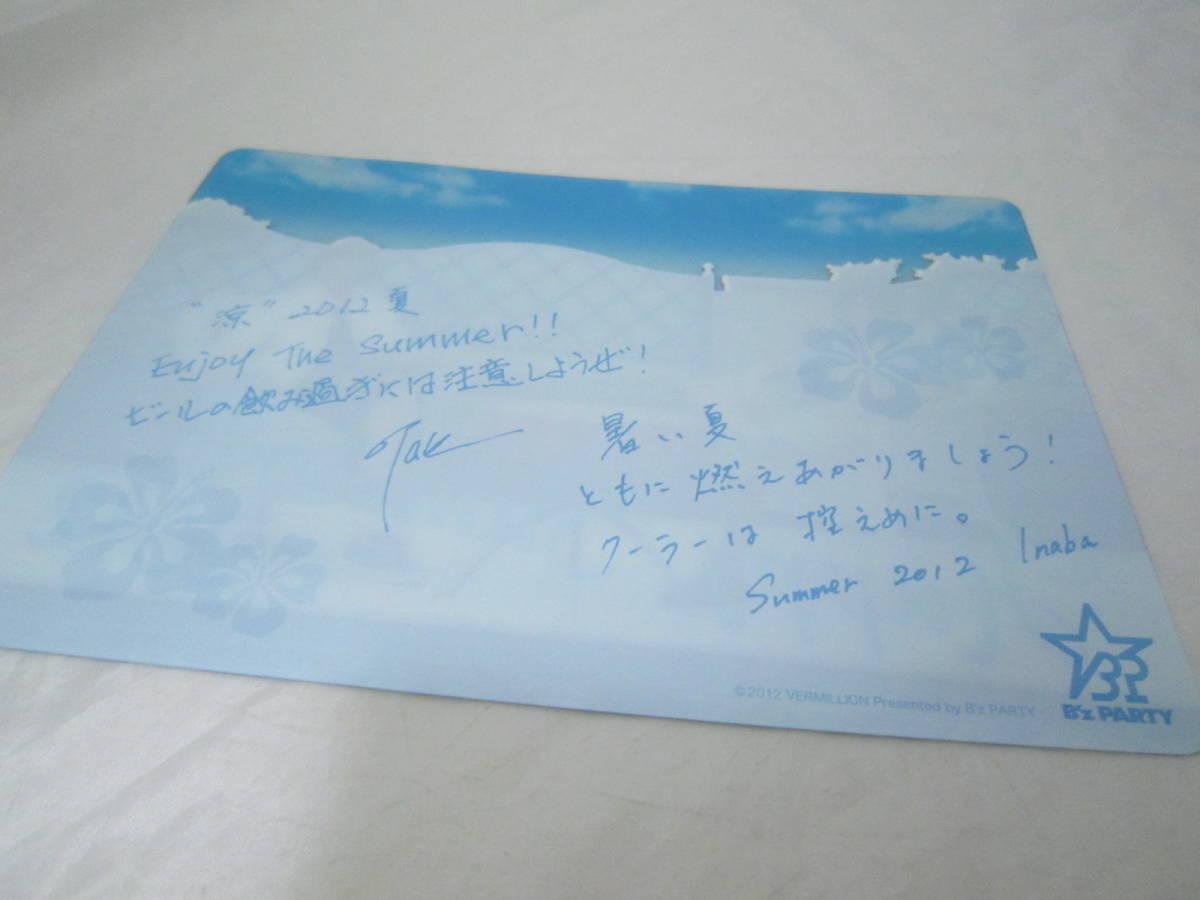 "涼" 2012 夏
Enjoy The Summer!!
ビールの飲み過ぎには注意しようぜ!
Tak
暑い夏
ともに燃えあがりましょう!
クーラーは控えめに。
Summer 2012 Inaba
©2012 VERMILLION Presented by B'z PARTY
B'z PARTY